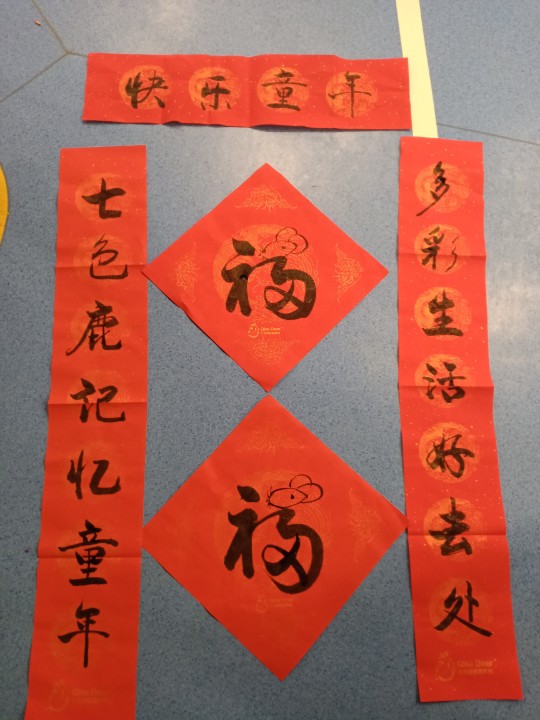 快乐童年
多彩生活好去处
七色鹿记忆童年
福
福